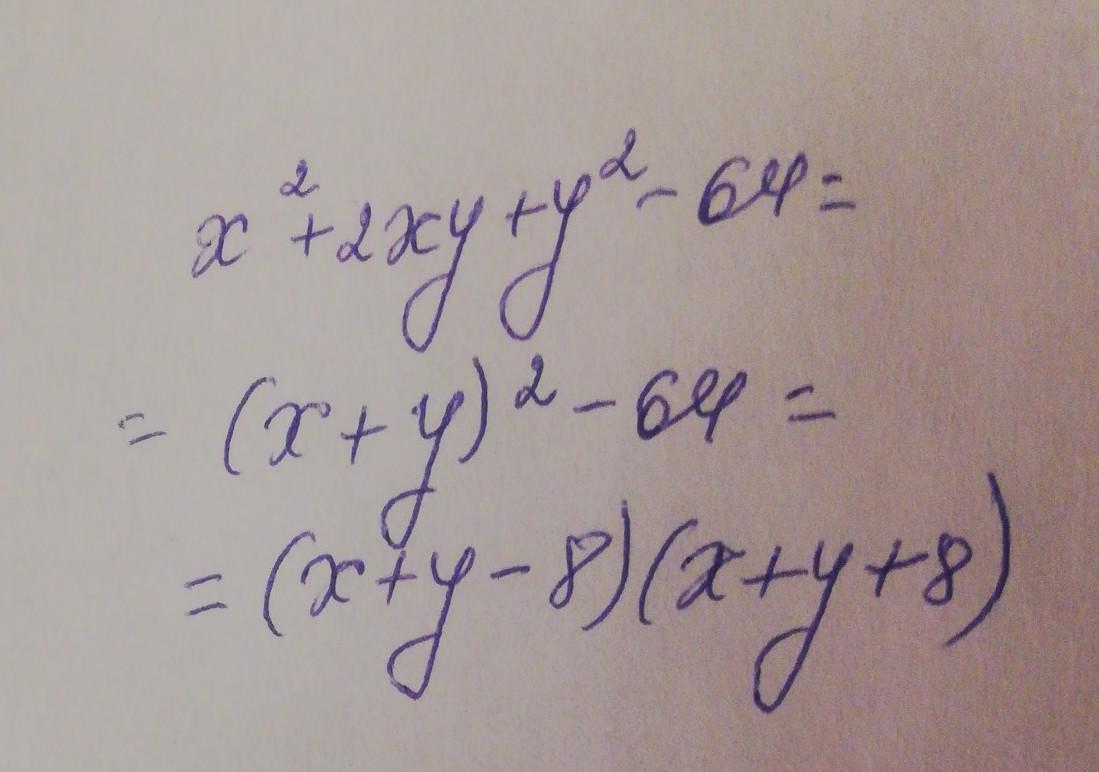 x²+2xy+y²-64=
= (x+y)²-64=
=(x+y-8)(x+y+8)